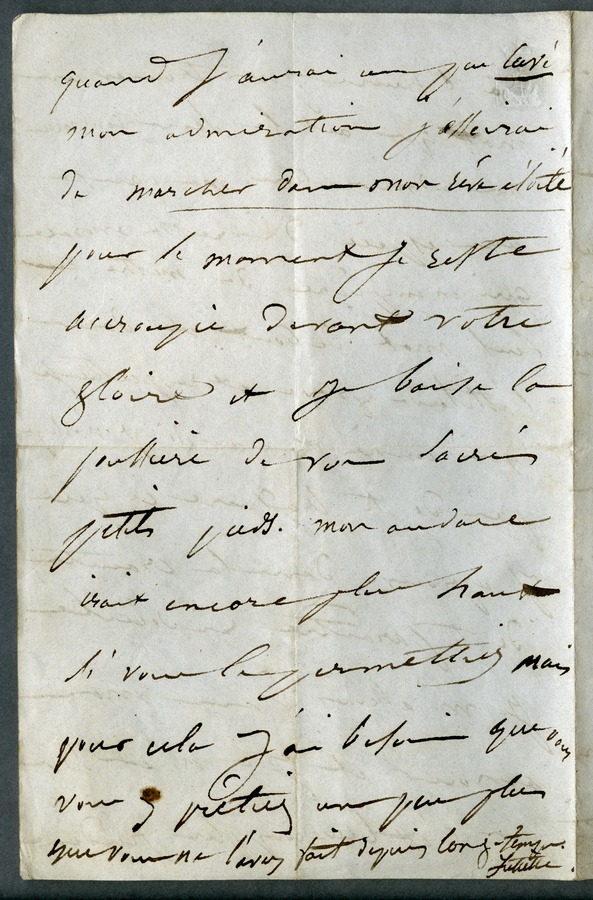 quand j'aurai un peu cuvé
mon admiration j'essaierai
de marcher dans mon rêve étoilé
pour le moment je reste
accroupie devant votre
gloire et je baise la
poussière de vos sacrés
petits pieds. mon audace
irait encore plus haut
si vous le permettiez mais
pour cela j'ai besoin que vous
vous y prêtiez un peu plus
que vous ne l'avez fait depuis long-temps.
Juliette